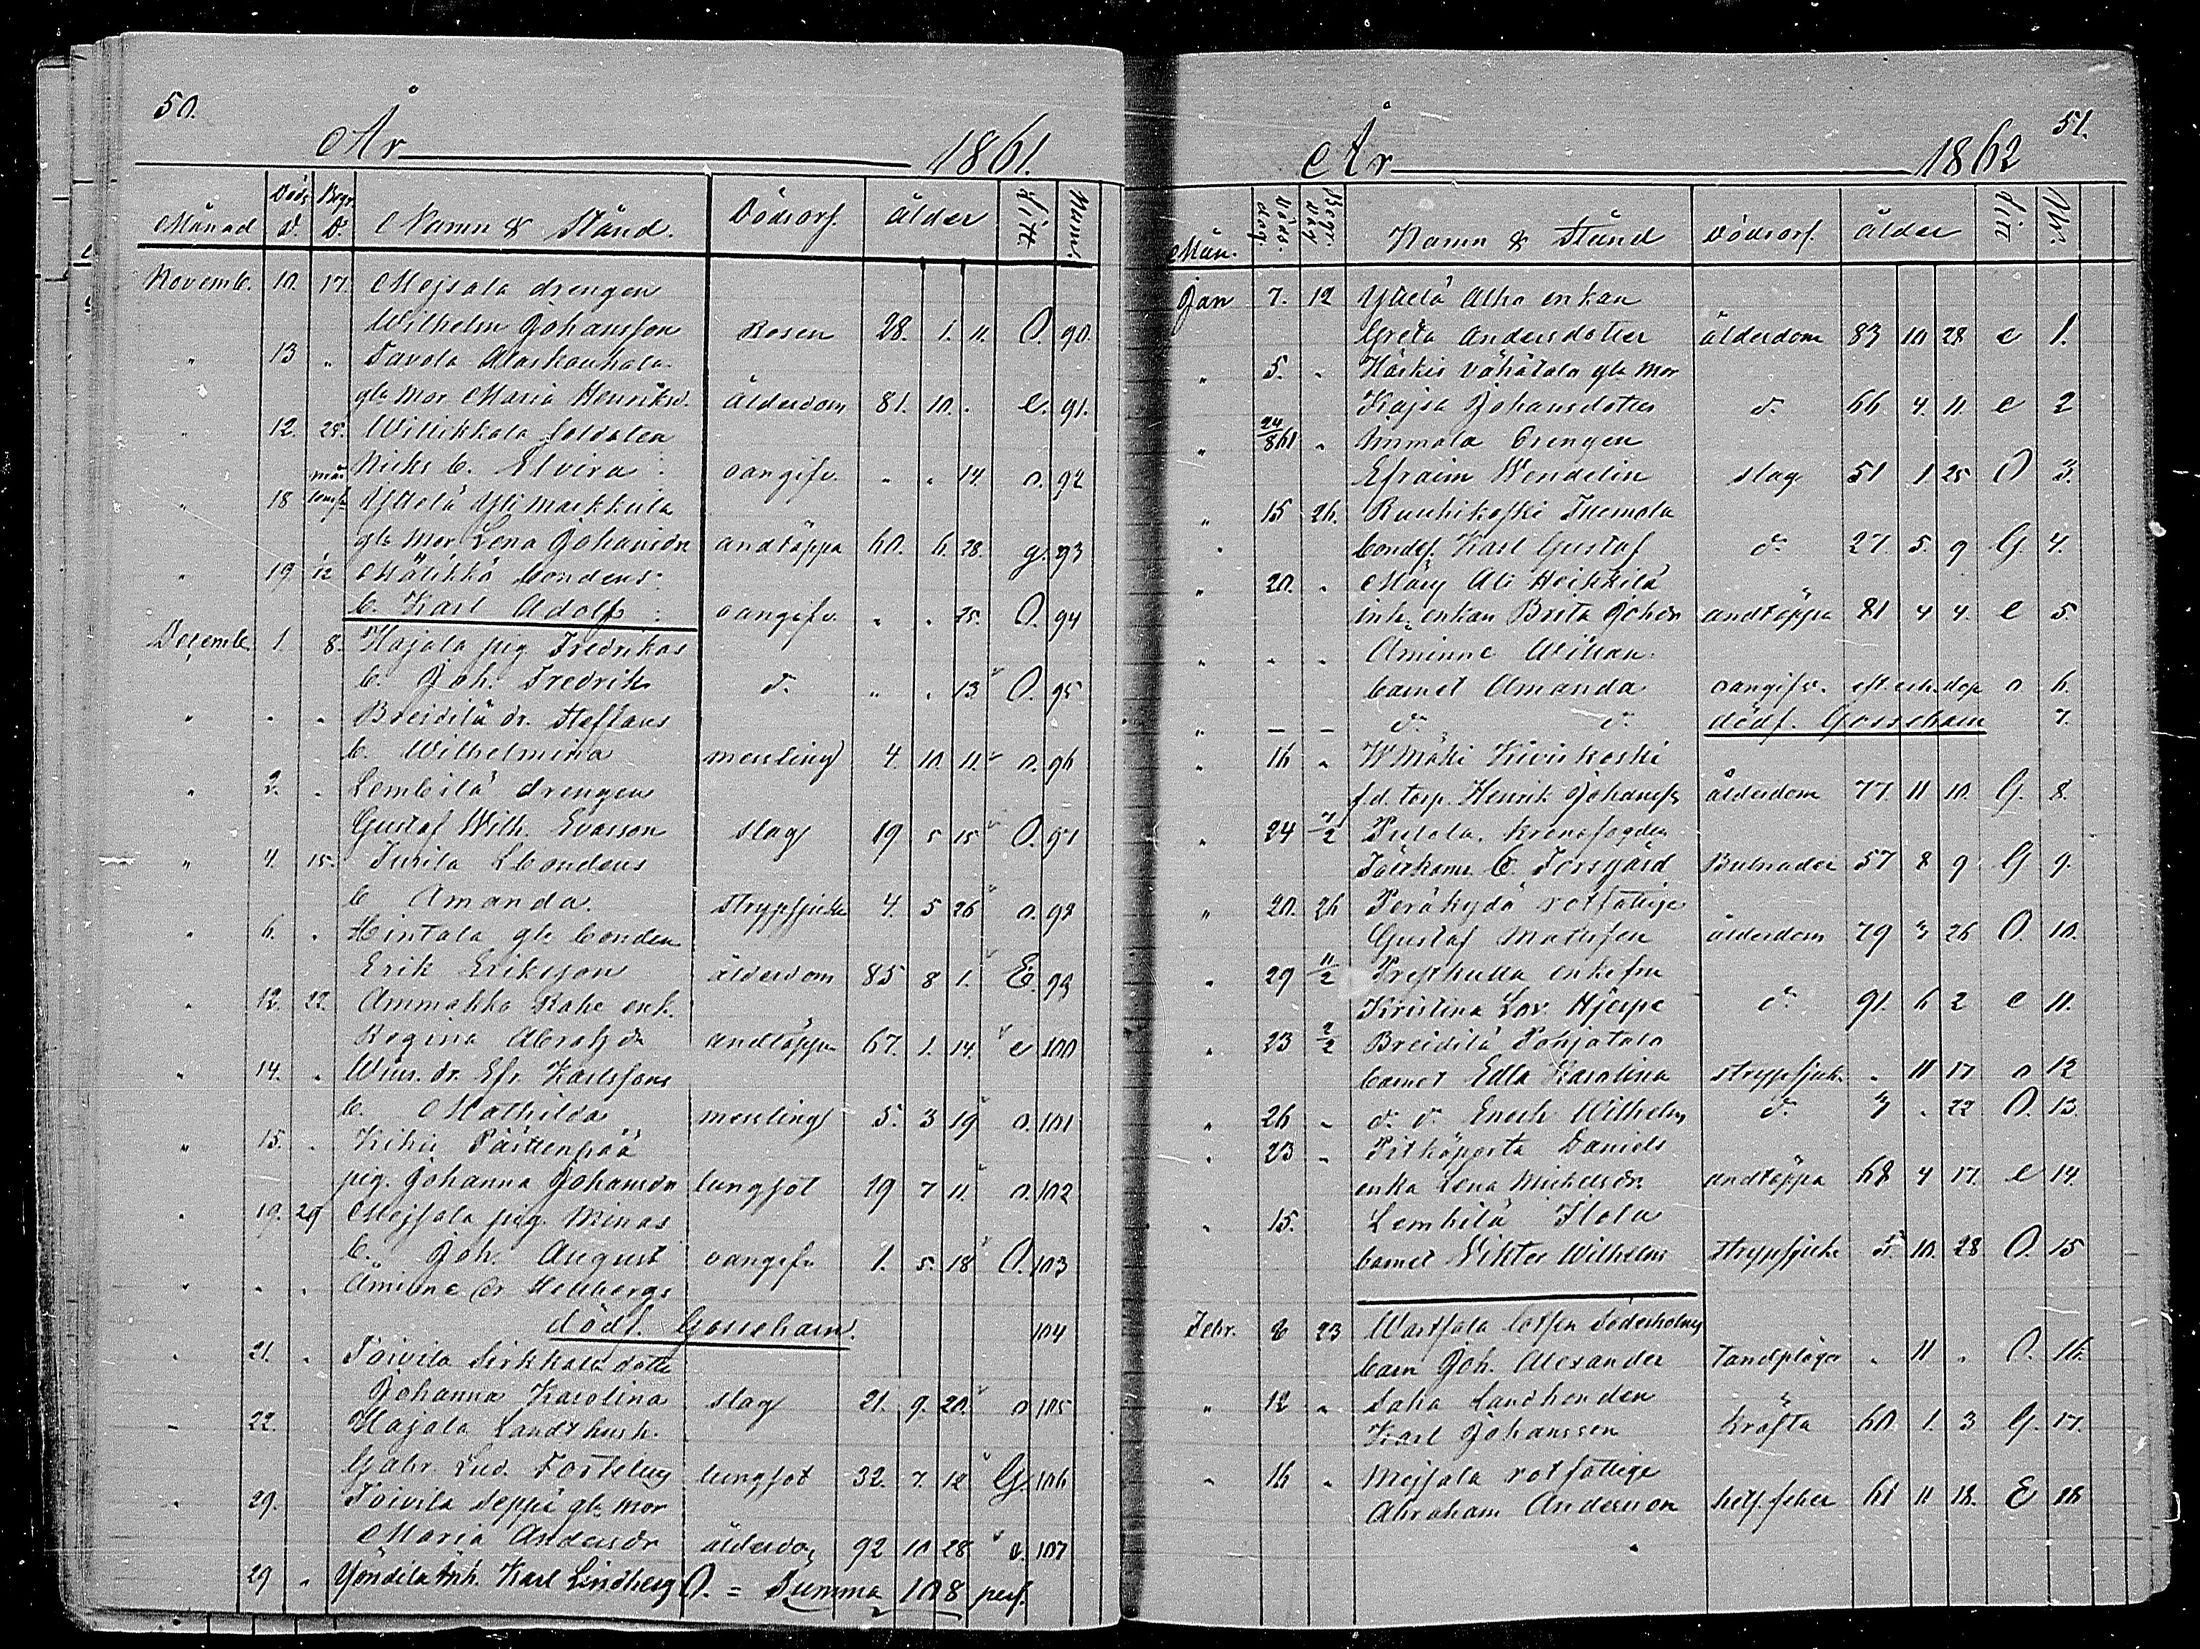 50.
År 1861.
Månad Döds d. Begr. d. Namn & Stånd. Dödsors. ålder Litt. Num.
Novemb. 10. 17. Mejsala drengen
Wilhelm Johansson Rosen 28. 1. 11. O. 90.
" 13 " Tavola
gla mor Maria Henriksd. ålderdom 81. 10. . e. 91.
12. 25. Willikkala soldaten
Nicks b. Elvira oangifv. " " 14. o. 92
18 Yttelä Ylimarkkula
gla mor Lena Johansdr andtäppa 60. 6. 28. g. 93
" 19 1/12 Mälikkä bondens
b. Karl Adolf oangifv. " " 25. O. 94
Decemb. 1. 8. Hajala pig. Fredrikas
b. Joh. Fredrik d. " " 13 O. 95
" " " Breidilä dr. Steffans
b. Wilhelmina messling 4. 10. 11. o. 96
" 2. " Lembilä drengen
Gustaf Wilh. Evasson slag 19 5 15 O. 97
" 4. 15. Juvila Lbondens
b Amanda. strypsjuka 4. 5 26 o. 98
" 6. " Hintala gle bonden
Erik Eriksson ålderdom 85 8 1. E. 99
" 12. 22. Ammakka Rahe enk.
Regina Abrahsdr andtäppa 67. 1. 14. e 100
" 14. " Wiur. dr. Efr. Karlssons
b. Mathilda messling 5. 3 19 o. 101
" 15. " Kihu Päittenpää
pig. Johanna Johansdr lungsot 19 7 11 o. 102
" 19. 29 Mejsala pig. Minas
b. Joh. August oangifv 1. 5. 18 O. 103
" " " Åminne dr Hellbergs
dödf. Gossebarn. 104
" 21. " Toivila Sirkkala dottr
Johanna Karolina slag 21. 9. 20. o 105
22. Hajala Landtbush.
Gabr. Lud. Fortelius lungsot 32. 7. 12 G. 106
" 29. Toivila Seppä gla mor
Maria Andersdr ålderdom 92 10 28 e. 107
29 " Yöntilä inh. Karl Lindberg O. = Summa 108 pers.
51.
År 1862
Mån. Döds. dag Begr. dag Namn & Stånd Dödsors. ålder Litt Nr.
Jan 7. 12 Yttelä Alho enkan
Greta Andersdotter ålderdom 83 10 28 e 1.
" 5. " Härkis Vähätalo gla mor
Kajsa Johansdotter d. 66 4. 11. e 2
" 24/8 61 " Ammala drengen
Efraim Wendelin slag 51 1 25 O 3.
" 15 26. Ruuhikoski Tuomola
bondes. Karl Gustaf d. 27. 5. 9 G. 4.
" 20. " Märy Ali Heikkilä
inh. enkan Brita Johdr andtäppa 81 4 4. e 5.
" " " Åminne Wilhan.
barnet Amanda oangifv. o 6.
" - - d. d. dödf. Gossebarn 7.
" 16 " WMäki Kivikoski
f.d. torp. Henrik Johanss ålderdom 77. 11 10. G. 8.
" 24 7/2 Pulola. kronofogden
C. Forsgård Bulnader 57 8 9. G 9.
" 20. 26 Peräkydä rotfattige
Gustaf Matssen ålderdom 79 3 26 O. 10.
" 29 11/2 Prestkulla enkefru
Kristina Lov. Hjerpe d. 91. 6 2 e 11.
" 23 2/2 Breidilä Pohjatalo
barnet Edla Karolina strypsjuk. " 11 17 o 12
" 26 " d. d. Enoch Wilhelm d. 3 " 22 O. 13.
" 23 " Pitkäporta Daniels
enka Lena Michelsdr. andtäppa 68 4 17. e 14.
" 15. Lembilä Flola
barnet Viktor Wilhelm strypsjuk. 5. 10. 28 O. 15
Febr. 8 23 Wartsala båtsm Söderholms
barn Joh. Alexander Tandplågor " 11 " O. 16.
" 12 " Saha Landbonden
Karl Johansson kräfta 60. 1. 3 G. 17.
" 16 " Mejsala rotfattige
Abraham Anderson hetf. feber 61 11 18. E 18